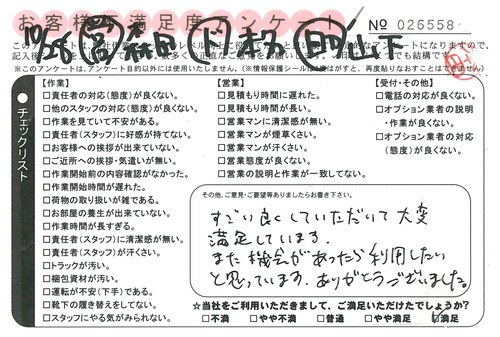 お客様不満足度アンケート
No 026558
※このアンケートは、アンケート目的以外には使用いたしません。(※情報保護シール
【作業】
□責任者の対応(態度)が良くない。
□他のスタッフの対応(態度)が良くない。
□作業を見ていて不安がある。
□責任者(スタッフ)に好感が持てない。
□お客様への挨拶が出来ていない。
□ご近所への挨拶・気遣いが無い。
□作業開始前の内容確認がなかった。
□作業開始時間が遅れた。
□荷物の取り扱いが雑である。
□お部屋の養生が出来ていない。
□作業時間が長すぎる。
□責任者(スタッフ)に清潔感が無い。
□責任者(スタッフ)が汗くさい。
□トラックが汚い。
□梱包資材が汚い。
□運転が不安(下手)である。
□靴下の履き替えをしてない。
□スタッフにやる気がみられない。
【営業】
□見積もり時間に遅れた。
□見積もり時間が長い。
□営業マンに清潔感が無い。
□営業マンが煙草くさい。
□営業マンが汗くさい。
□営業態度が良くない。
□営業の説明と作業が一致してない。
【受付・その他】
□電話の対応が良くない。
□オプション業者の説明
・作業が良くない。
□オプション業者の対応
(態度)が良くない。
チェックリスト
その他、ご意見・ご要望等ありましたらお書き下さい。
すごい良くしていただいて大変
満足しています。
また機会があったら利用したい
と思っています。ありがとうございました。
☆当社をご利用いただきまして、ご満足いただけたでしょうか?
□不満 □やや不満 □普通 □やや満足 ☑満足